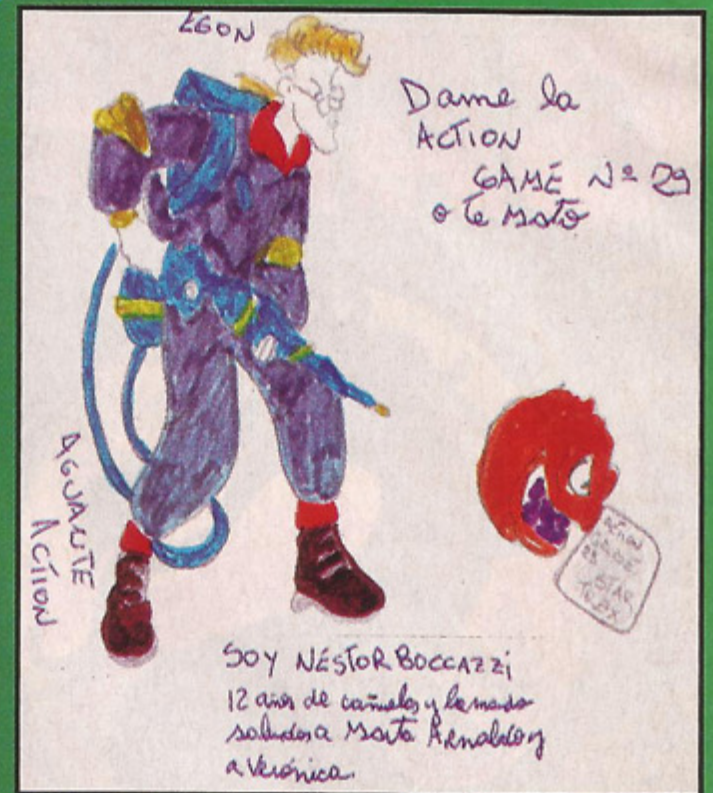 EGON
Dame la
ACTION
GAME Nº 29
o te mato
AGUANTE
ACTION
ACTION
GAME
SOY NÉSTOR BOCCAZZi
12 años de cañuelas y le mando
saludos a Marta Arnaldo y
a Verónica.